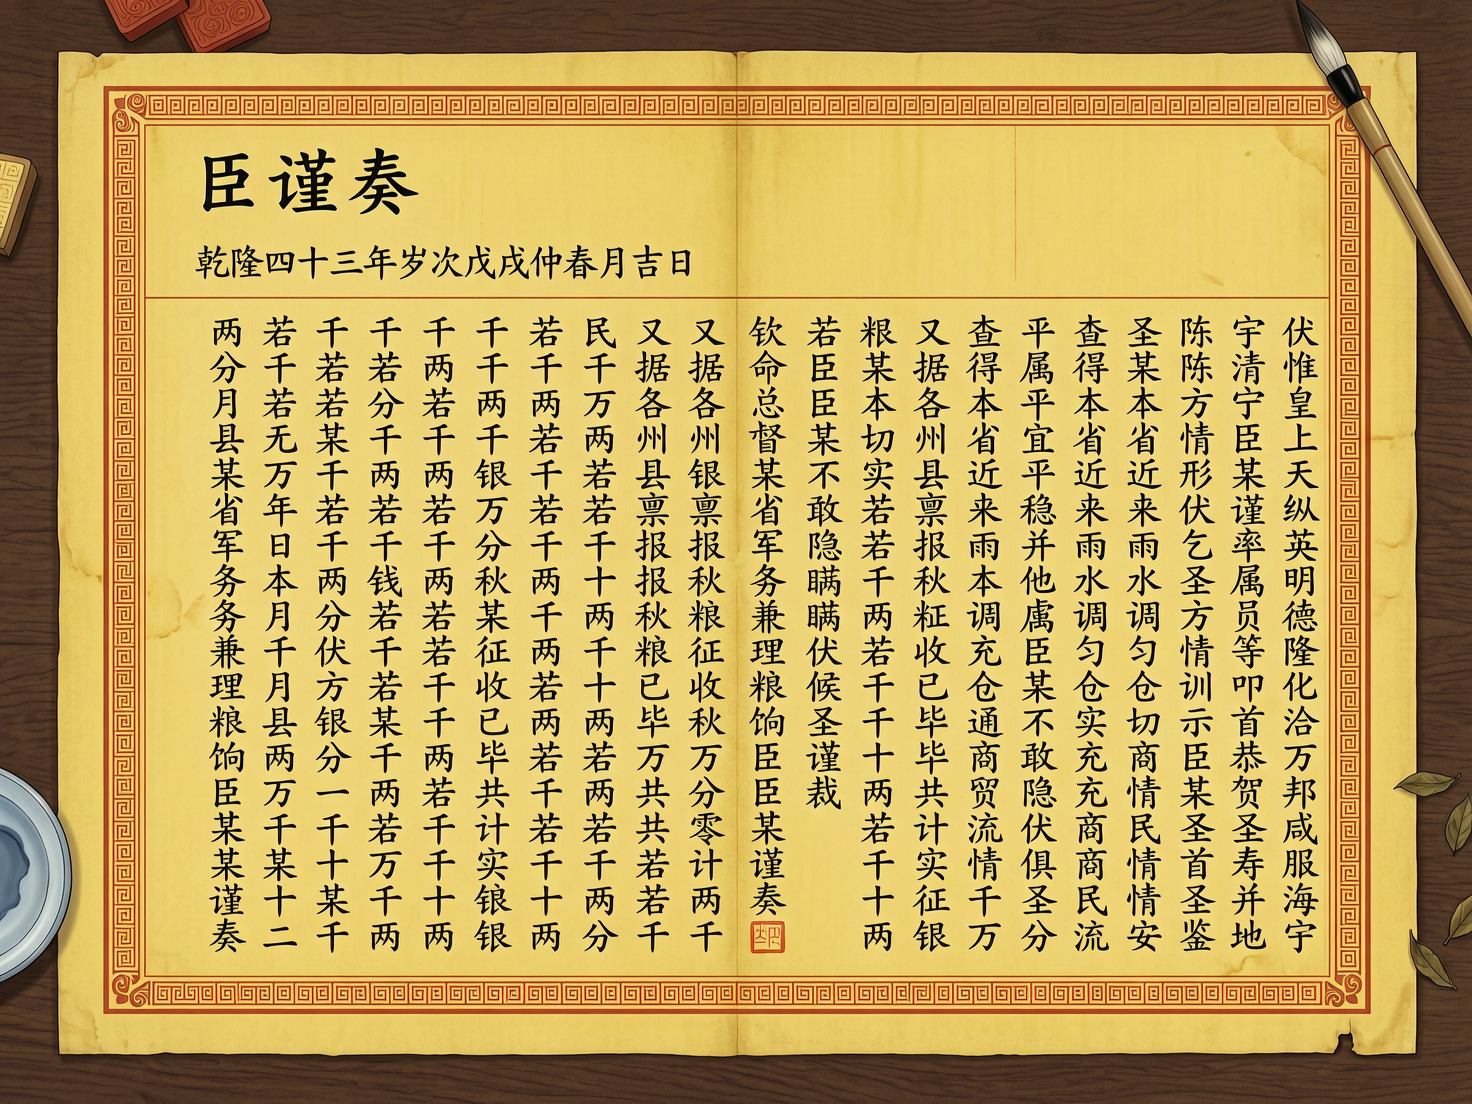 臣谨奏
乾隆四十三年岁次戊戌仲春月吉日
伏惟皇上天纵英明德隆化洽万邦咸服海宇
宇清宁臣某谨率属员等叩首恭贺圣寿并地
陈陈方情形伏乞圣方情训示臣某圣首圣鉴
圣某本省近来雨水调匀仓切商情民情情安
查得本省近来雨水调匀仓实充充商商民流
平属平宜平稳并他臣某不敢隐伏俱圣分
查得本省近来雨本调充仓通商贸流情千万
又据各州县禀报秋收已毕毕共计实征银
某本切实若若千两若千千十两若千十两
若臣臣某不敢隐瞒瞒伏候圣谨裁
钦命总督某省军务兼理粮饷臣臣某谨奏
又据各州银禀报秋粮征收秋万分零计两千
又据各州县禀报报秋粮已毕万共共若若千
民千万两若若千十两千十两若两若千两分
若千两若千若千两千两若两若千若千十两
千千两千银万分秋某征收已毕共计实银银
千两若千两若千两若若千千两若千千十两
千若分千两若千钱若千若某千两若万千两
千若若某千若千两分伏方银分一千十某千
若千若无万年日本月千月县两万千某十二
两分月县某省军务务兼理粮饷臣某某谨奏